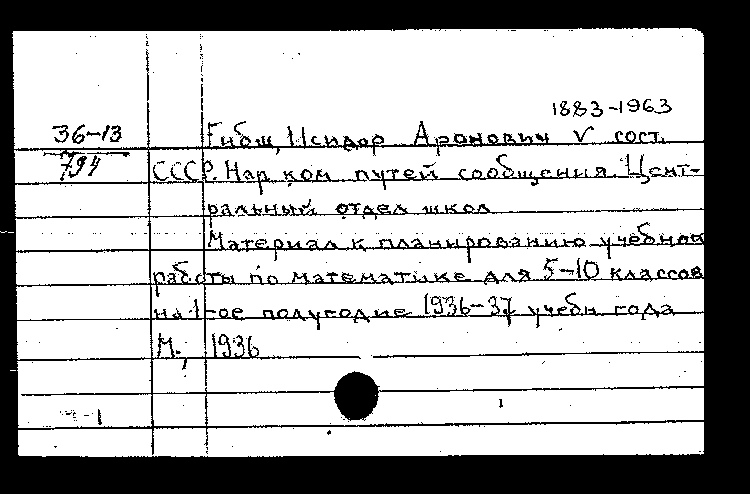 1883-1963
36-13 Гибш, Исидор Аронович V сост.
794 СССР. Нар. ком. путей сообщения. Цент-
ральный отдел школ
Материал к планированию учебной
работы по математике для 5-10 классов
на 1-ое полугодие 1936-37 учебн. года
М., 1936